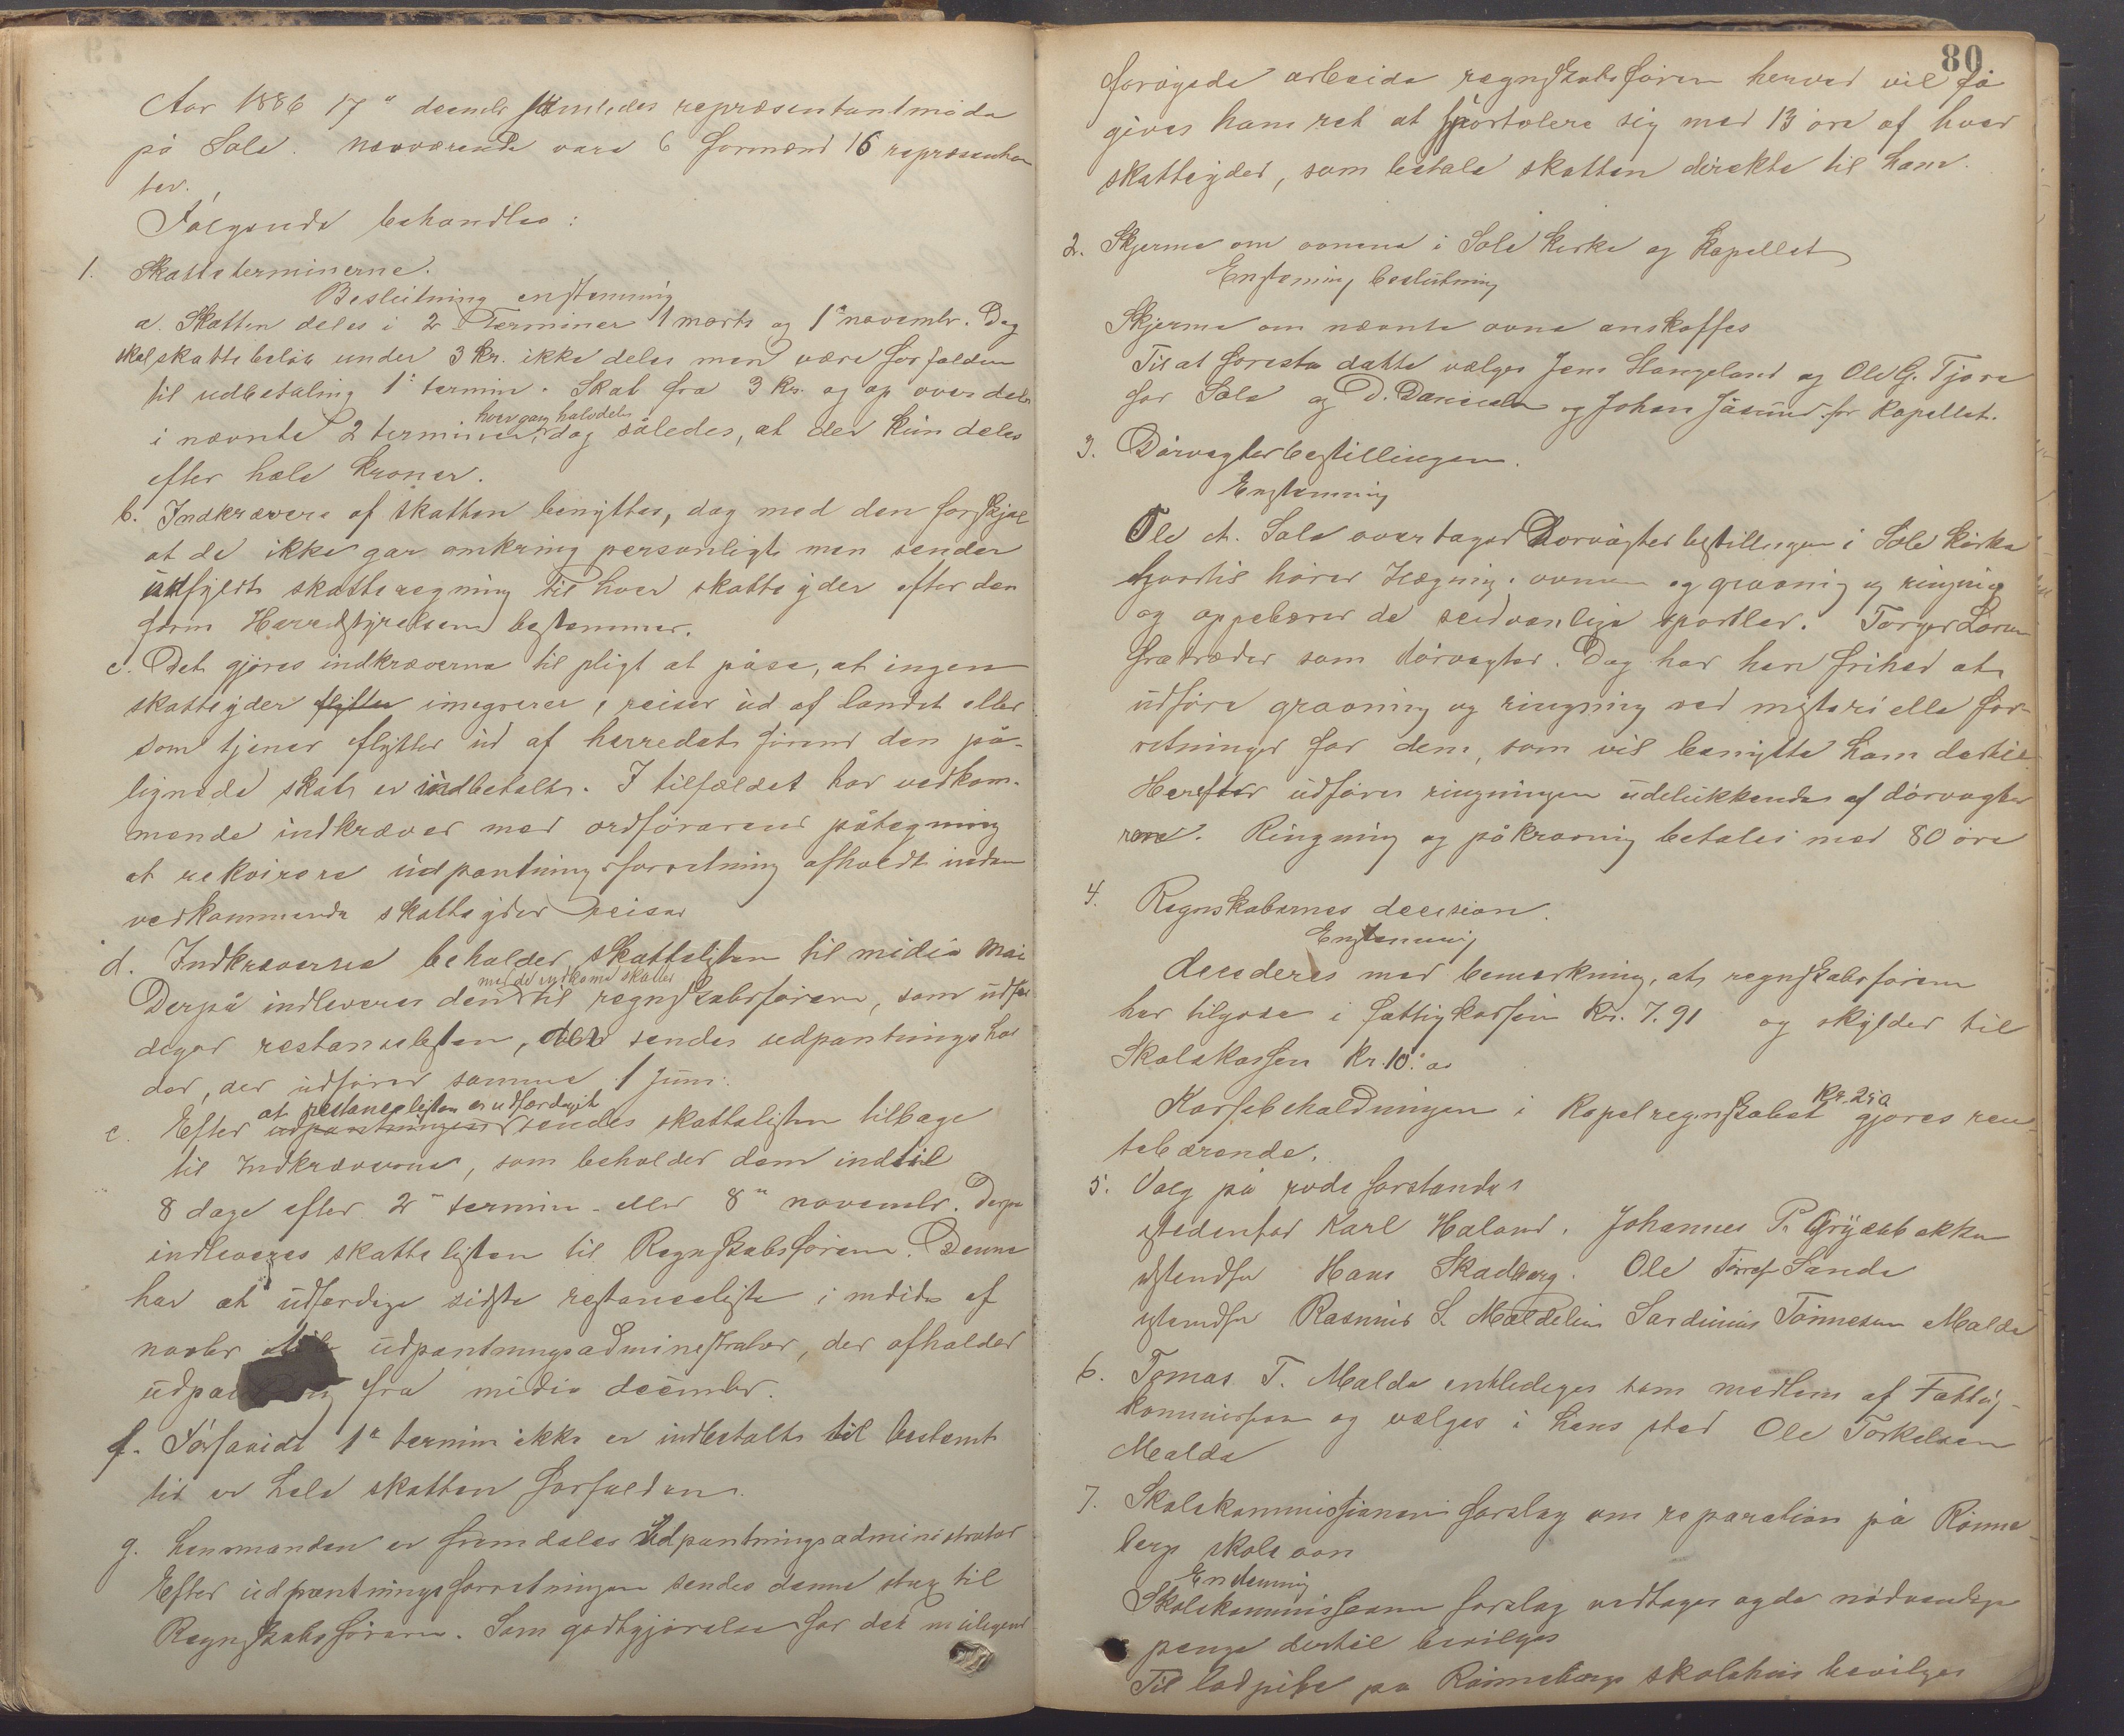 Aar 1886 17n decembr samledes repræsentantmøde
på Sole. Nærværende vare 6 formænd 16 repræsentan
ter.
Følgende behandles:
1. Skatteterminerne.
Beslutning enstemmig
a. Skatten deles i 2 Terminer 1 marts og 1n novembr. Dog
skal skattebeløb under 3 kr. ikke deles men være forfalden
til udbetaling 1ste termin. Skat fra 3 kr. og op over deles
hver gang halvdelen
i nævnte 2 terminer, dog således, at der kun deles
efter hele kroner.
b. Indkrævere af skatten benyttes, dog med den forskjel
at de ikke går omkring personligt men sender
udfyldt skatteregning til hver skatteyder efter den
form Herredstyrelsen bestemmer.
c. Det gjøres indkræverne til pligt at påse, at ingen
skatteyder flytter imegrerer, reiser ud af landet eller
som tjener flytter ud af herredet førend den på-
lignede skat er indbetalt. I tilfældet har vedkom-
mende indkræver med ordførerens påtegning
at rekvirere udpantningsforretning afholdt inden
vedkommende skatteyder reiser
d. Indkræverne beholder skattelisten til midio Mai
med de indkomne skatter
Derpå indleveres den til regnskabsføreren, som udfær
diger restanselisten, der sendes udpantningshol
der, der udfører samme 1 Juni.
at restancelisten er udfærdiget
e. Efter udpantningen sendes skattelisten tilbage
til Indkræverne, som beholder dem indtil
8 dage efter 2n termin eller 8n novembr. Derpå
indleveres skattelisten til Regnskabsføreren. Denne
har at udfærdige sidste restanceliste i midio af
novbr udpantningsadministrator, der afholder
fra midio decembr.
f. Forsavidt 1n termin ikke er indbetalt til bestemt
tid er hele skatten forfalden.
g. Lensmanden er fremdeles Udpantningsadministrator
Efter udpantningsforretningen sendes denne strax til
Regnskabsføreren. Som godtgjørelse for det
80
forøgede arbeide regnskabsføren herved vil få
gives ham ret at sportolere sig med 13 øre af hver
skatteyder, som betale skatten direkte til ham.
2. Skjerme om ovnene i Sole kirke og Kapellet
Enstemig beslutning
Skjerme om nævnte ovne anskaffes
Til at foresta dette vælges Jens Stangeland og Ole G. Tjora
for Sole og D. Danielsen og Johan Jåsund for Kapellet.
3. Dørvogterbestillingen.
Enstemmig
Ole A. Sole overtager Dørvogterbestillingen i Sole kirke
hvortil hører lægning i ovnen og gravning og ringning
og oppebærer de sedvanlige sportler. Torger
fratræder som dørvogter. Dog har han frihed at
udføre gravning og ringning ved misterielle for-
retninger for dem, som vil benytte ham dertil
Herefter udføres ringningen udelukkende af dørvogte
rene. Ringning og påkravnig betales med 80 øre
4. Regnskabernes decision.
Enstemmig
decideres med bemærkning, at regnskabsføren
har tilgode i fattigkassen Kr. 7.91 og skylder til
Skolekassen Kr. 10.
Kr.
Kassebeholdningen i Kapelregnskabet gjøres ren-
tebærende.
5. Valg på rodeforstander
istedenfor Karl Haland. Johannes P. Grydebakken
istendfor Hans Skadberg. Ole Sande
istendfor Rasmus S. Mældelin Sardinius Tønnesen Malde
6. Tomas T. Malde entlediges som medlem af Fattig-
kommission og vælges i hans sted Ole Torkelsen
Malde
7. Skolekommissionens forslag om reparation på Rønne-
berg skole ovn
Enstemmig
Skolekommissionens forslag vedtages og de nødvendige
penge dertil bevilges
Til ladpibe på Rønnebergs skolehus bevilges